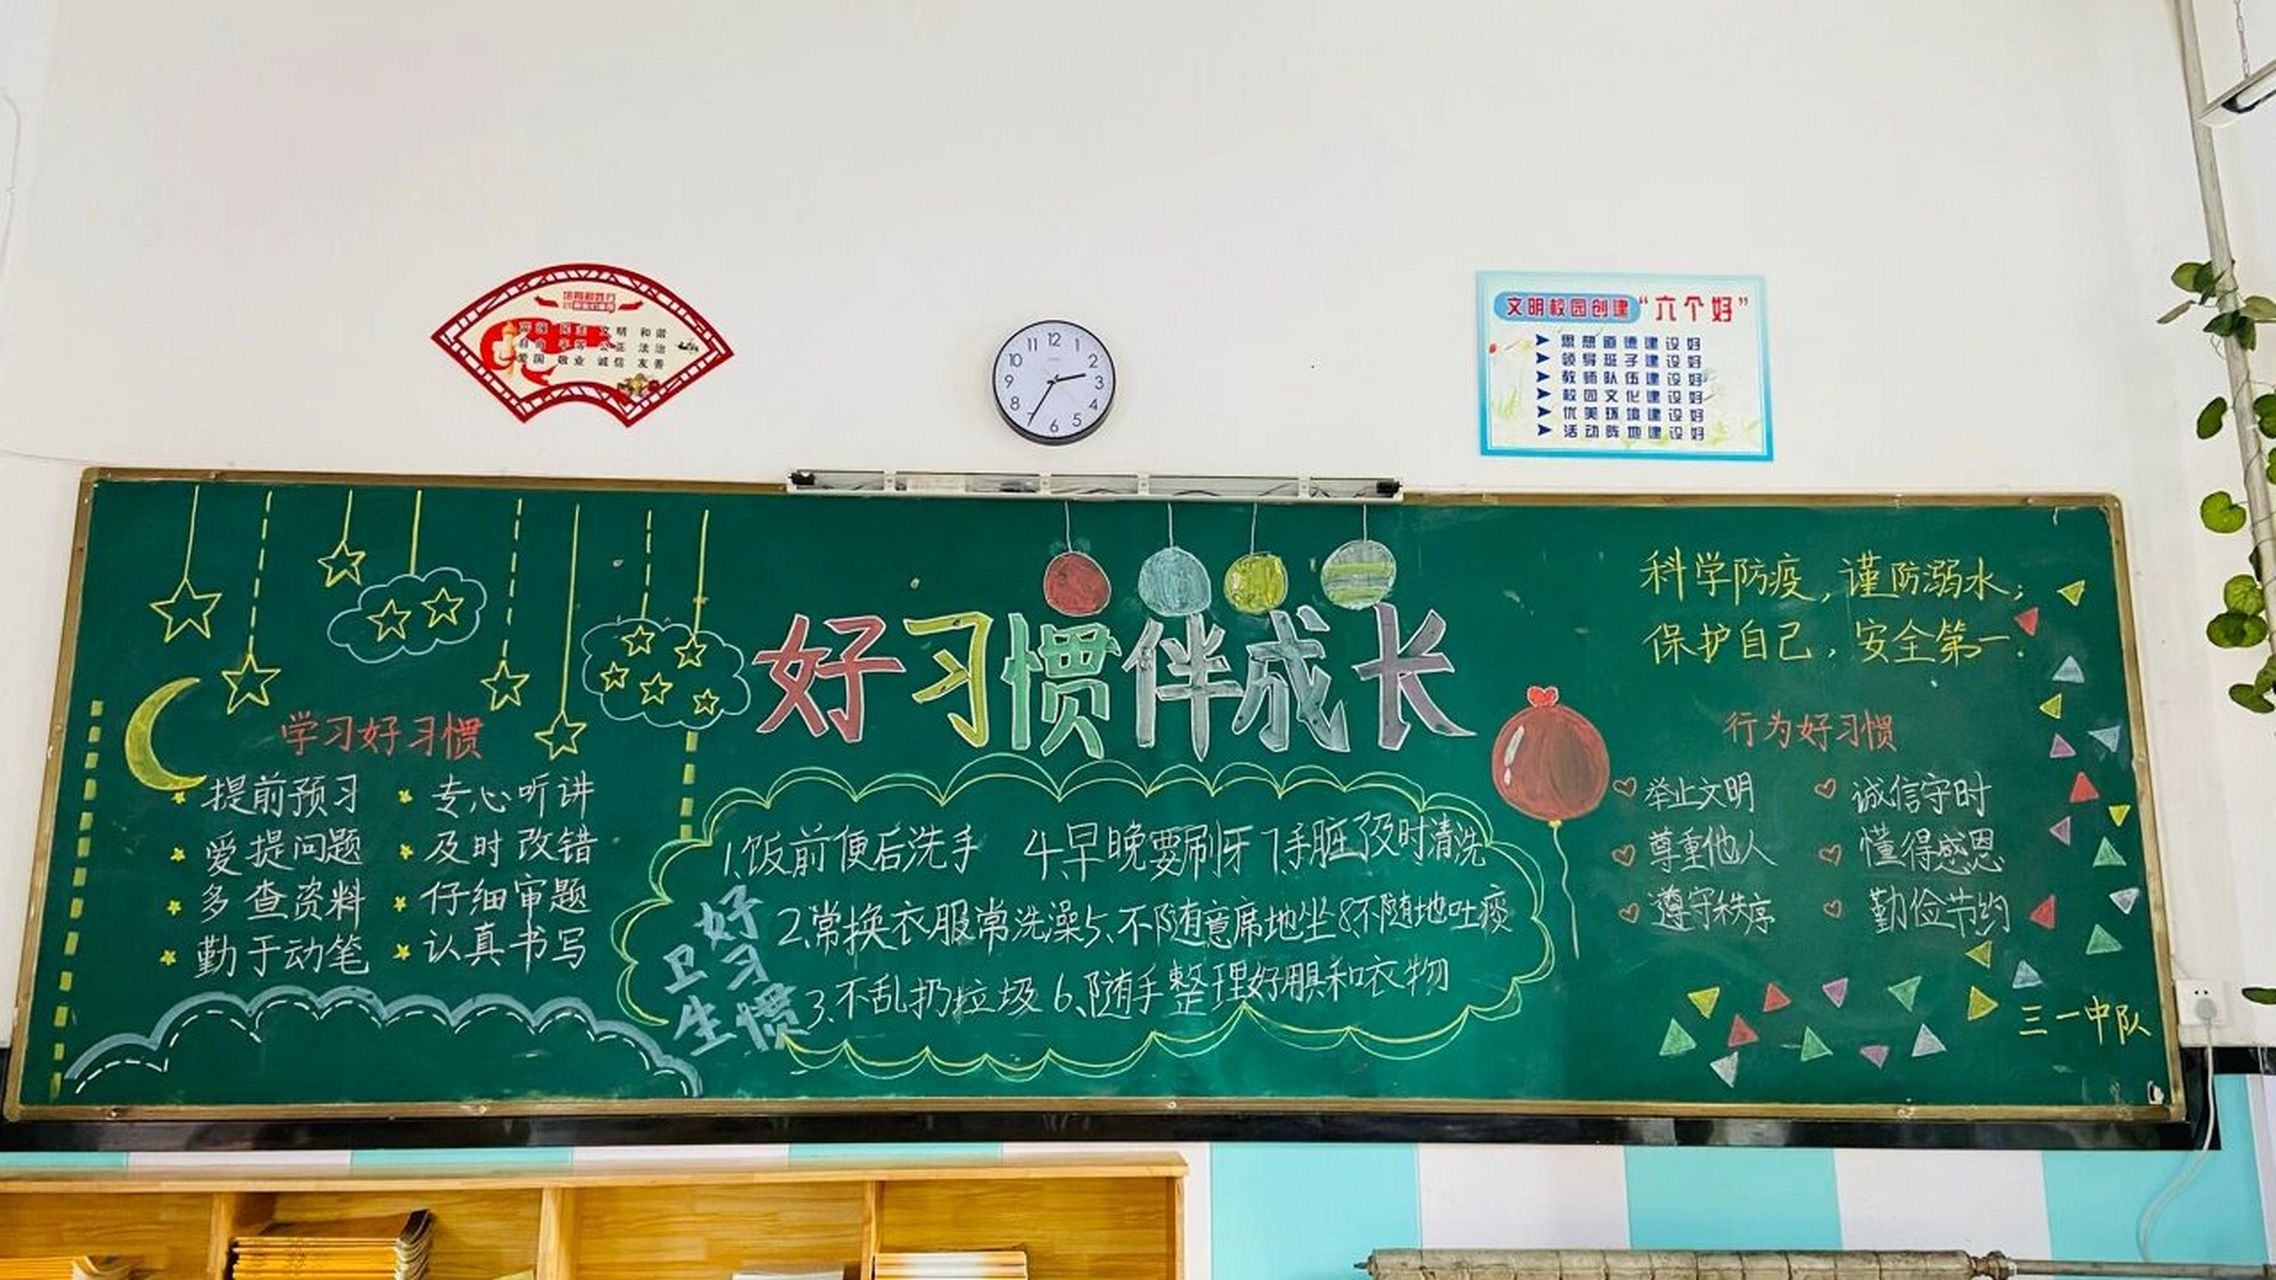 富强 民主 文明 和谐
自由 平等 公正 法治
爱国 敬业 诚信 友善
12
1
2
3
4
5
6
7
8
9
10
11
文明校园创建“六个好”
思想道德建设好
领导班子建设好
教师队伍建设好
校园文化建设好
优美环境建设好
活动阵地建设好
好习惯伴成长
学习好习惯
提前预习 专心听讲
爱提问题 及时改错
多查资料 仔细审题
勤于动笔 认真书写
卫生好习惯
1、饭前便后洗手 4、早晚要刷牙 7、手脏了及时清洗
2、常换衣服常洗澡 5、不随意席地坐 8、不随地吐痰
3、不乱扔垃圾 6、随手整理好用具和衣物
科学防疫，谨防溺水；
保护自己，安全第一.
行为好习惯
举止文明 诚信守时
尊重他人 懂得感恩
遵守秩序 勤俭节约
三一中队